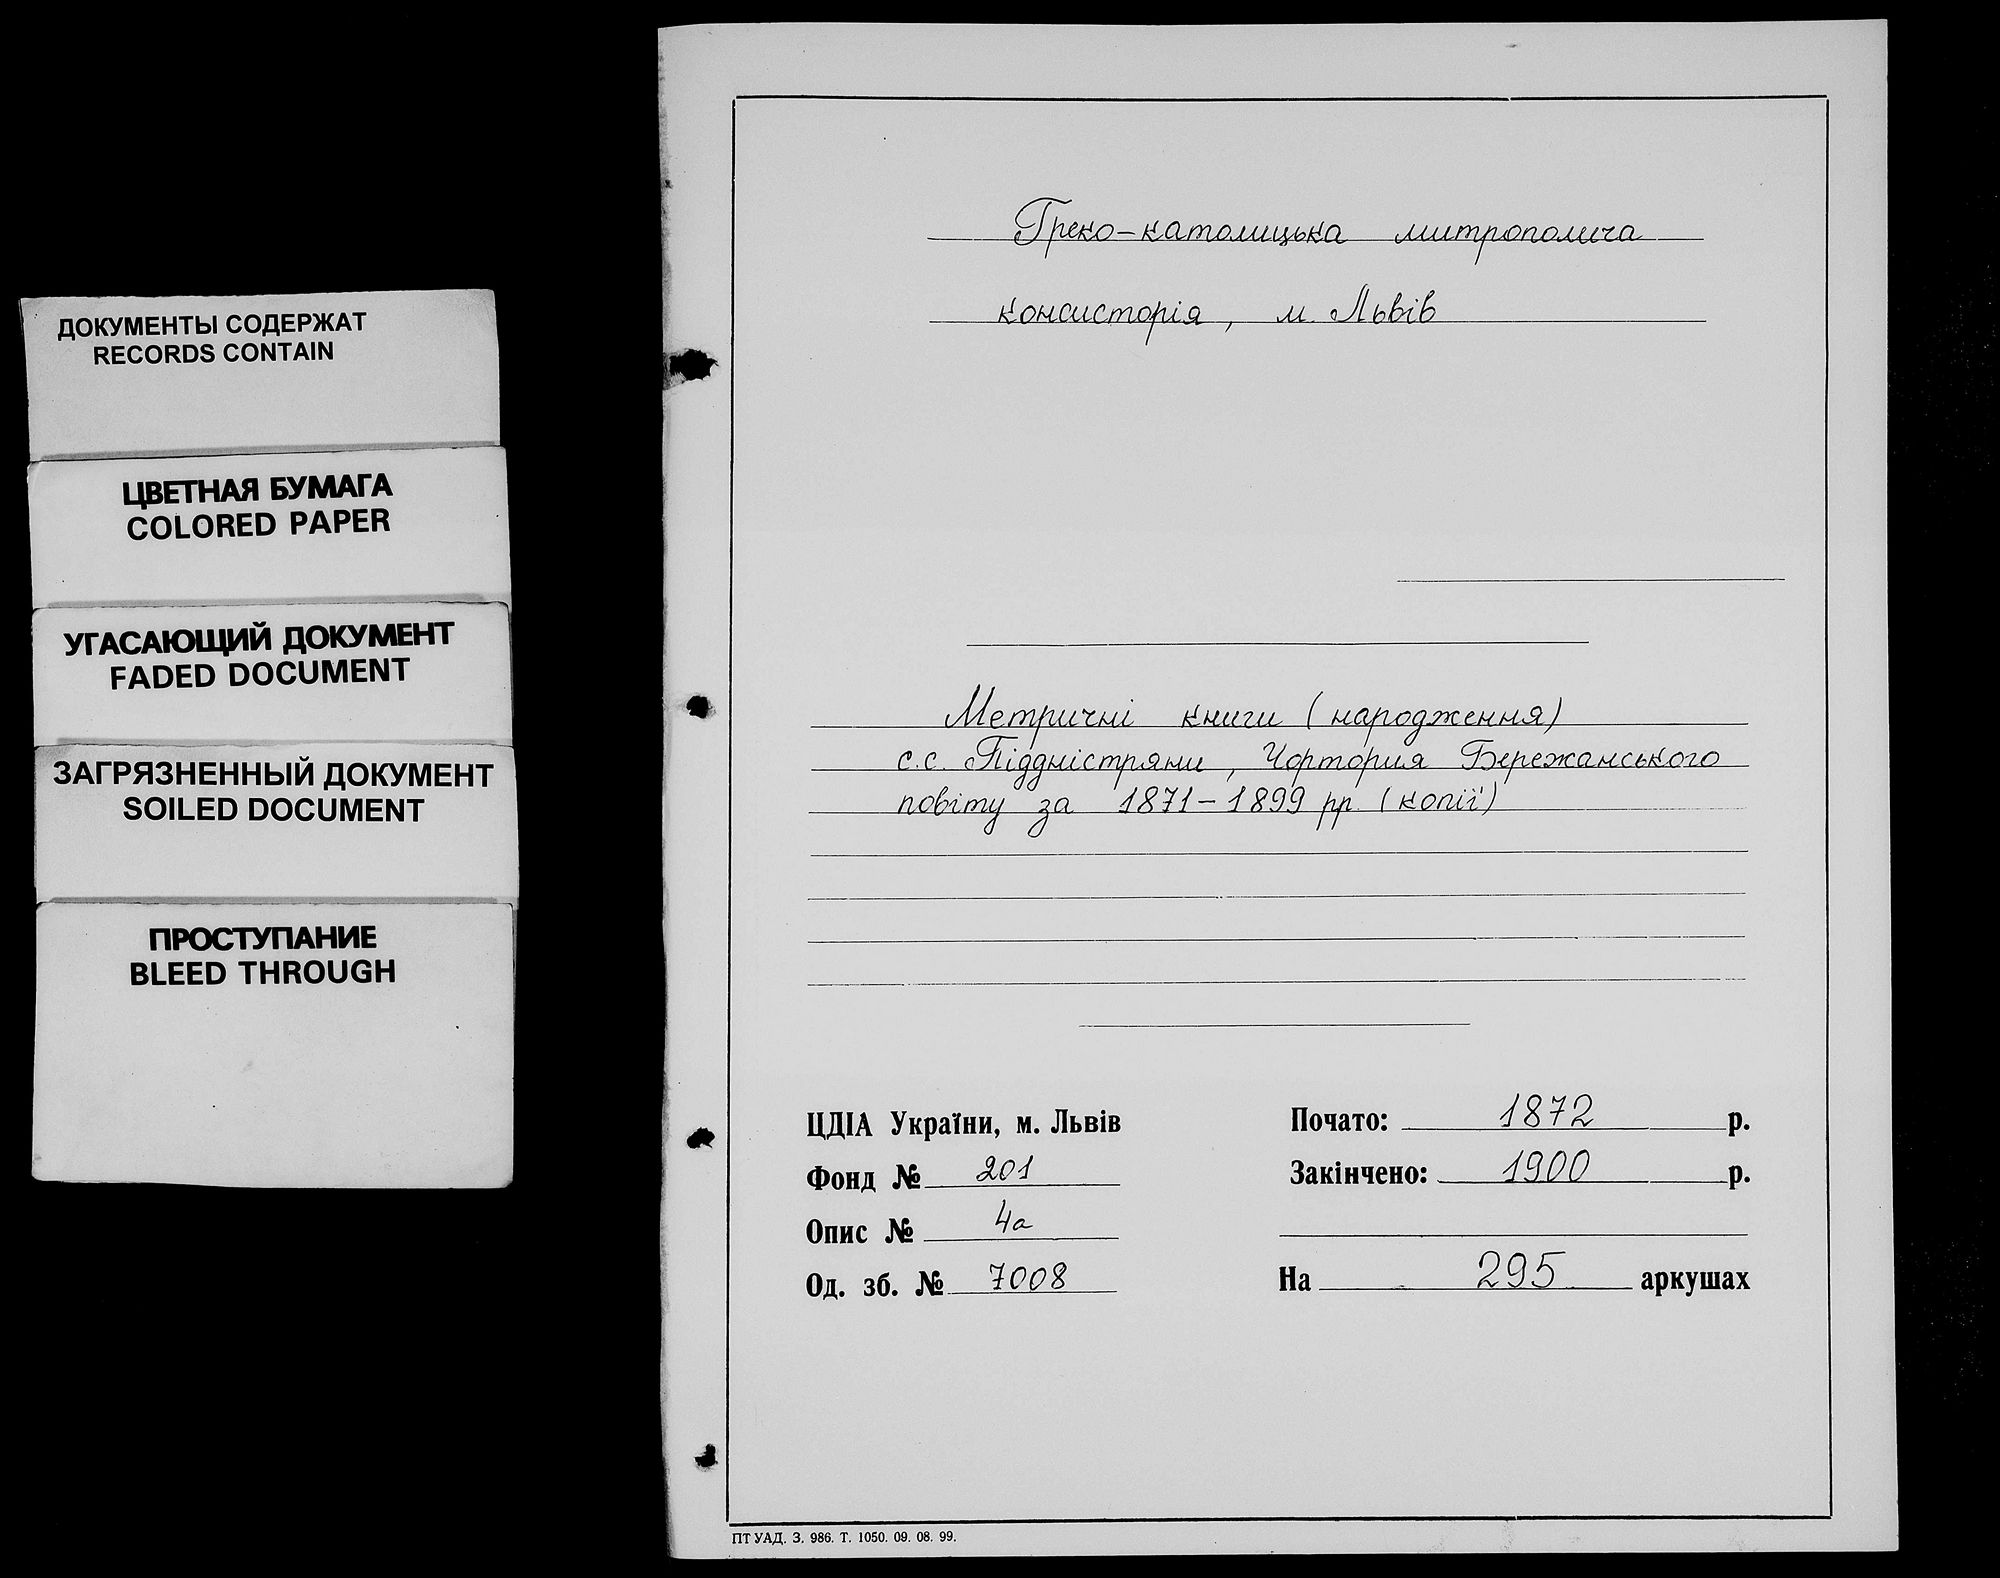 ДОКУМЕНТЫ СОДЕРЖАТ
RECORDS CONTAIN
ЦВЕТНАЯ БУМАГА
COLORED PAPER
УГАСАЮЩИЙ ДОКУМЕНТ
FADED DOCUMENT
ЗАГРЯЗНЕННЫЙ ДОКУМЕНТ
SOILED DOCUMENT
ПРОСТУПАНИЕ
BLEED THROUGH
Греко-католицька митрополича
консисторія, м. Львів
Метричні книги (народження)
с.с. Піддністряни, Чортория Бережанського
повіту за 1871-1899 рр. (копії)
ЦДІА України, м. Львів
Фонд № 201
Опис № 4а
Од. зб. № 7008
Почато: 1872 р.
Закінчено: 1900 р.
На 295 аркушах
ПТ УАД. З. 986. Т. 1050. 09. 08. 99.